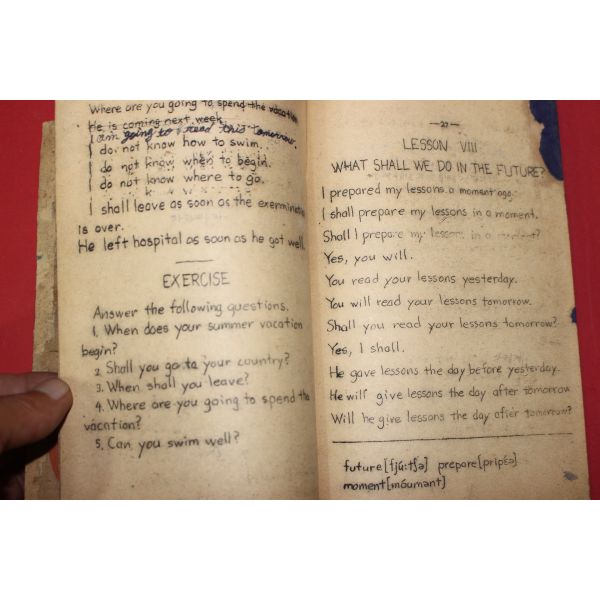 Where are you going to spend the vacation
He is coming next week.
I am going to read this tomorrow.
I do not know how to swim.
I do not know when to begin.
I do not know where to go.
I shall leave as soon as the exerminatio
is over.
He left hospital as soon as he got well.
EXERCISE
Answer the following questions.
1. When does your summer vacation
begin?
2. Shall you go to your country?
3. When shall you leave?
4. Where are you going to spend the
vacation?
5. Can you swim well?
—27—
LESSON VIII
WHAT SHALL WE DO IN THE FUTURE?
I prepared my lessons a moment ago.
I shall prepare my lessons in a moment.
Shall I prepare my lessons in a moment?
Yes, you will.
You read your lessons yesterday.
You will read your lessons tomorrow.
Shall you read your lessons tomorrow?
Yes, I shall.
He gave lessons the day before yesterday.
He will give lessons the day after tomorrow
Will he give lessons the day after tomorrow?
future[fjú:tʃə] prepare[pripɛ́ə]
moment[móumənt]